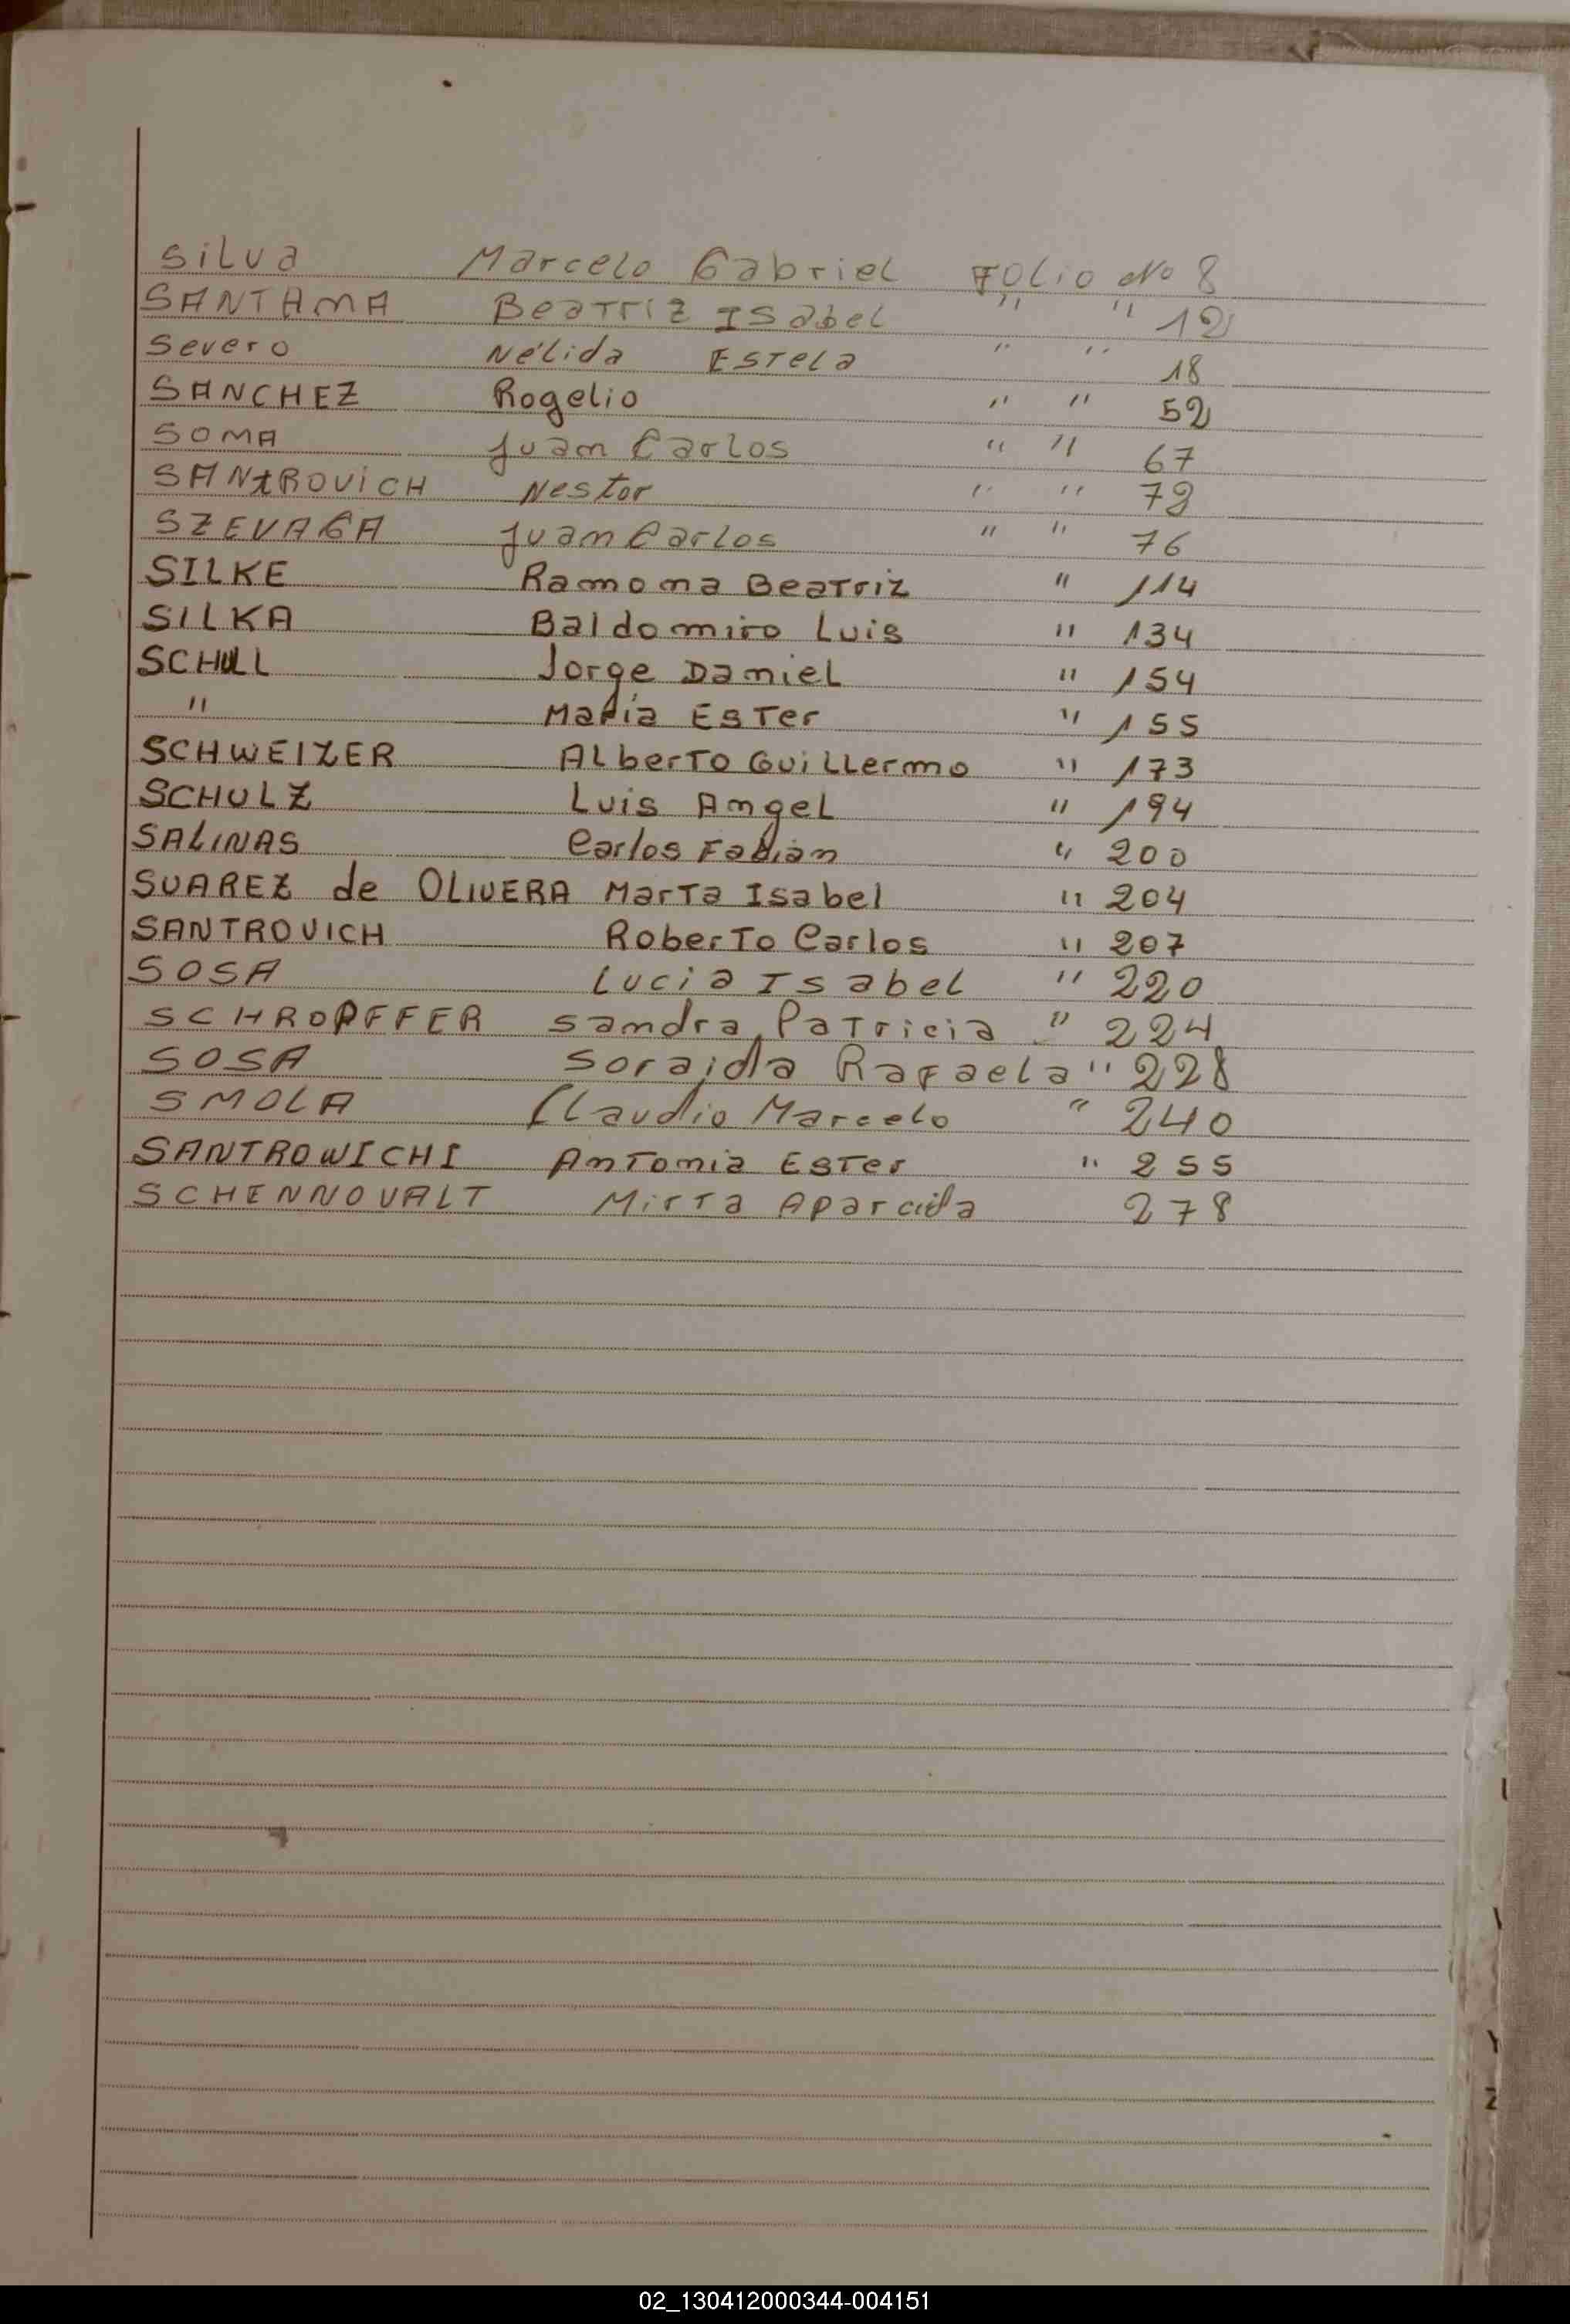 Silva Marcelo Gabriel Folio No 8
SANTAMA Beatriz Isabel " " 12
Severo Nélida Estela " " 18
SANCHEZ Rogelio " " 52
SOMA Juan Carlos " " 67
SANtROViCH Nestor " "
SZEVAGA Juan Carlos " " 76
SILKE Ramona Beatriz " 114
SILKA Baldomiro Luis " 134
SCHULL Jorge Daniel " 154
" María Ester " 155
SCHWEIZER Alberto Guillermo " 173
SCHULZ Luis Angel " 194
SALINAS Carlos Fabian " 200
SUAREZ de OLIVERA Marta Isabel " 204
SANTROVICH Roberto Carlos " 207
SOSA Lucia Isabel " 220
SCHROPFFER Sandra Patricia " 224
SOSA Soraida Rafaela " 228
SMOLA Claudio Marcelo " 240
SANTROWICHI Antonia Ester " 255
SCHENNOVALT Mirta 278
Y
Z
02_130412000344-004151